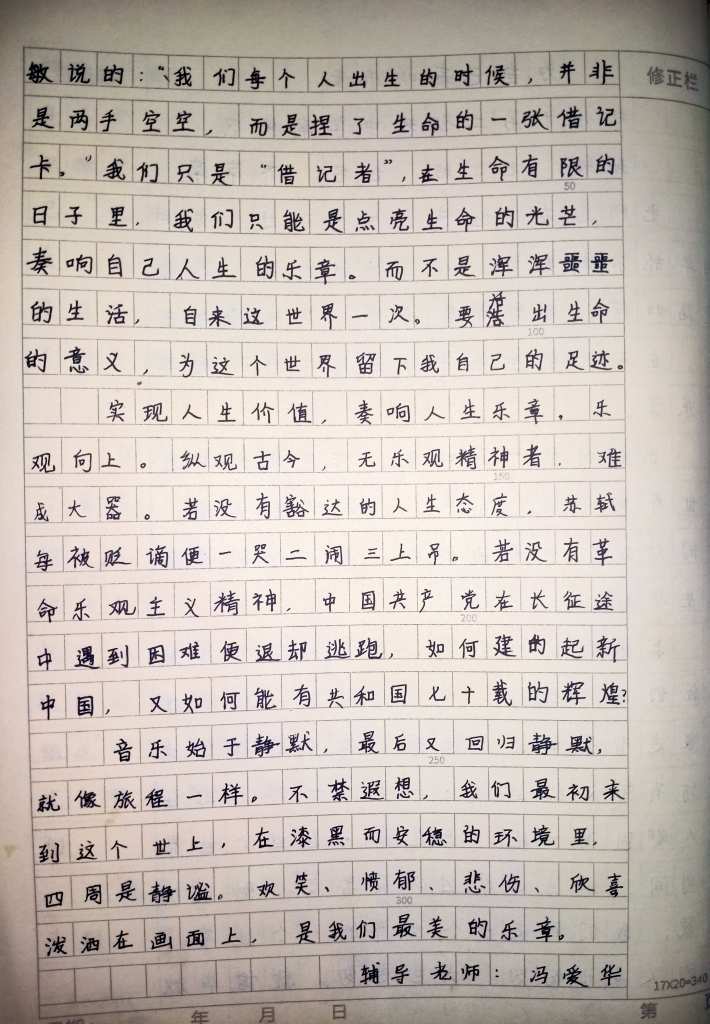 敏说的："我们每个人出生的时候，并非 修正栏
是两手空空，而是捏了生命的一张借记
卡。"我们只是"借记者"，在生命有限的
50
日子里，我们只能是点亮生命的光芒，
奏响自己人生的乐章。而不是浑浑噩噩
的生活，自来这世界一次。要活出生命
100
的意义，为这个世界留下我自己的足迹。
实现人生价值，奏响人生乐章，乐
观向上。纵观古今，无乐观精神者，难
150
成大器。若没有豁达的人生态度，苏轼
每被贬谪便一哭二闹三上吊。若没有革
命乐观主义精神，中国共产党在长征途
200
中遇到困难便退却逃跑，如何建的起新
中国，又如何能有共和国七十载的辉煌？
音乐始于静默，最后又回归静默，
250
就像旅程一样。不禁遐想，我们最初来
到这个世上，在漆黑而安稳的环境里，
四周是静谧。欢笑、愤郁、悲伤、欣喜
300
泼洒在画面上，是我们最美的乐章。
辅导老师：冯爱华
17X20=340
年 月 日 第